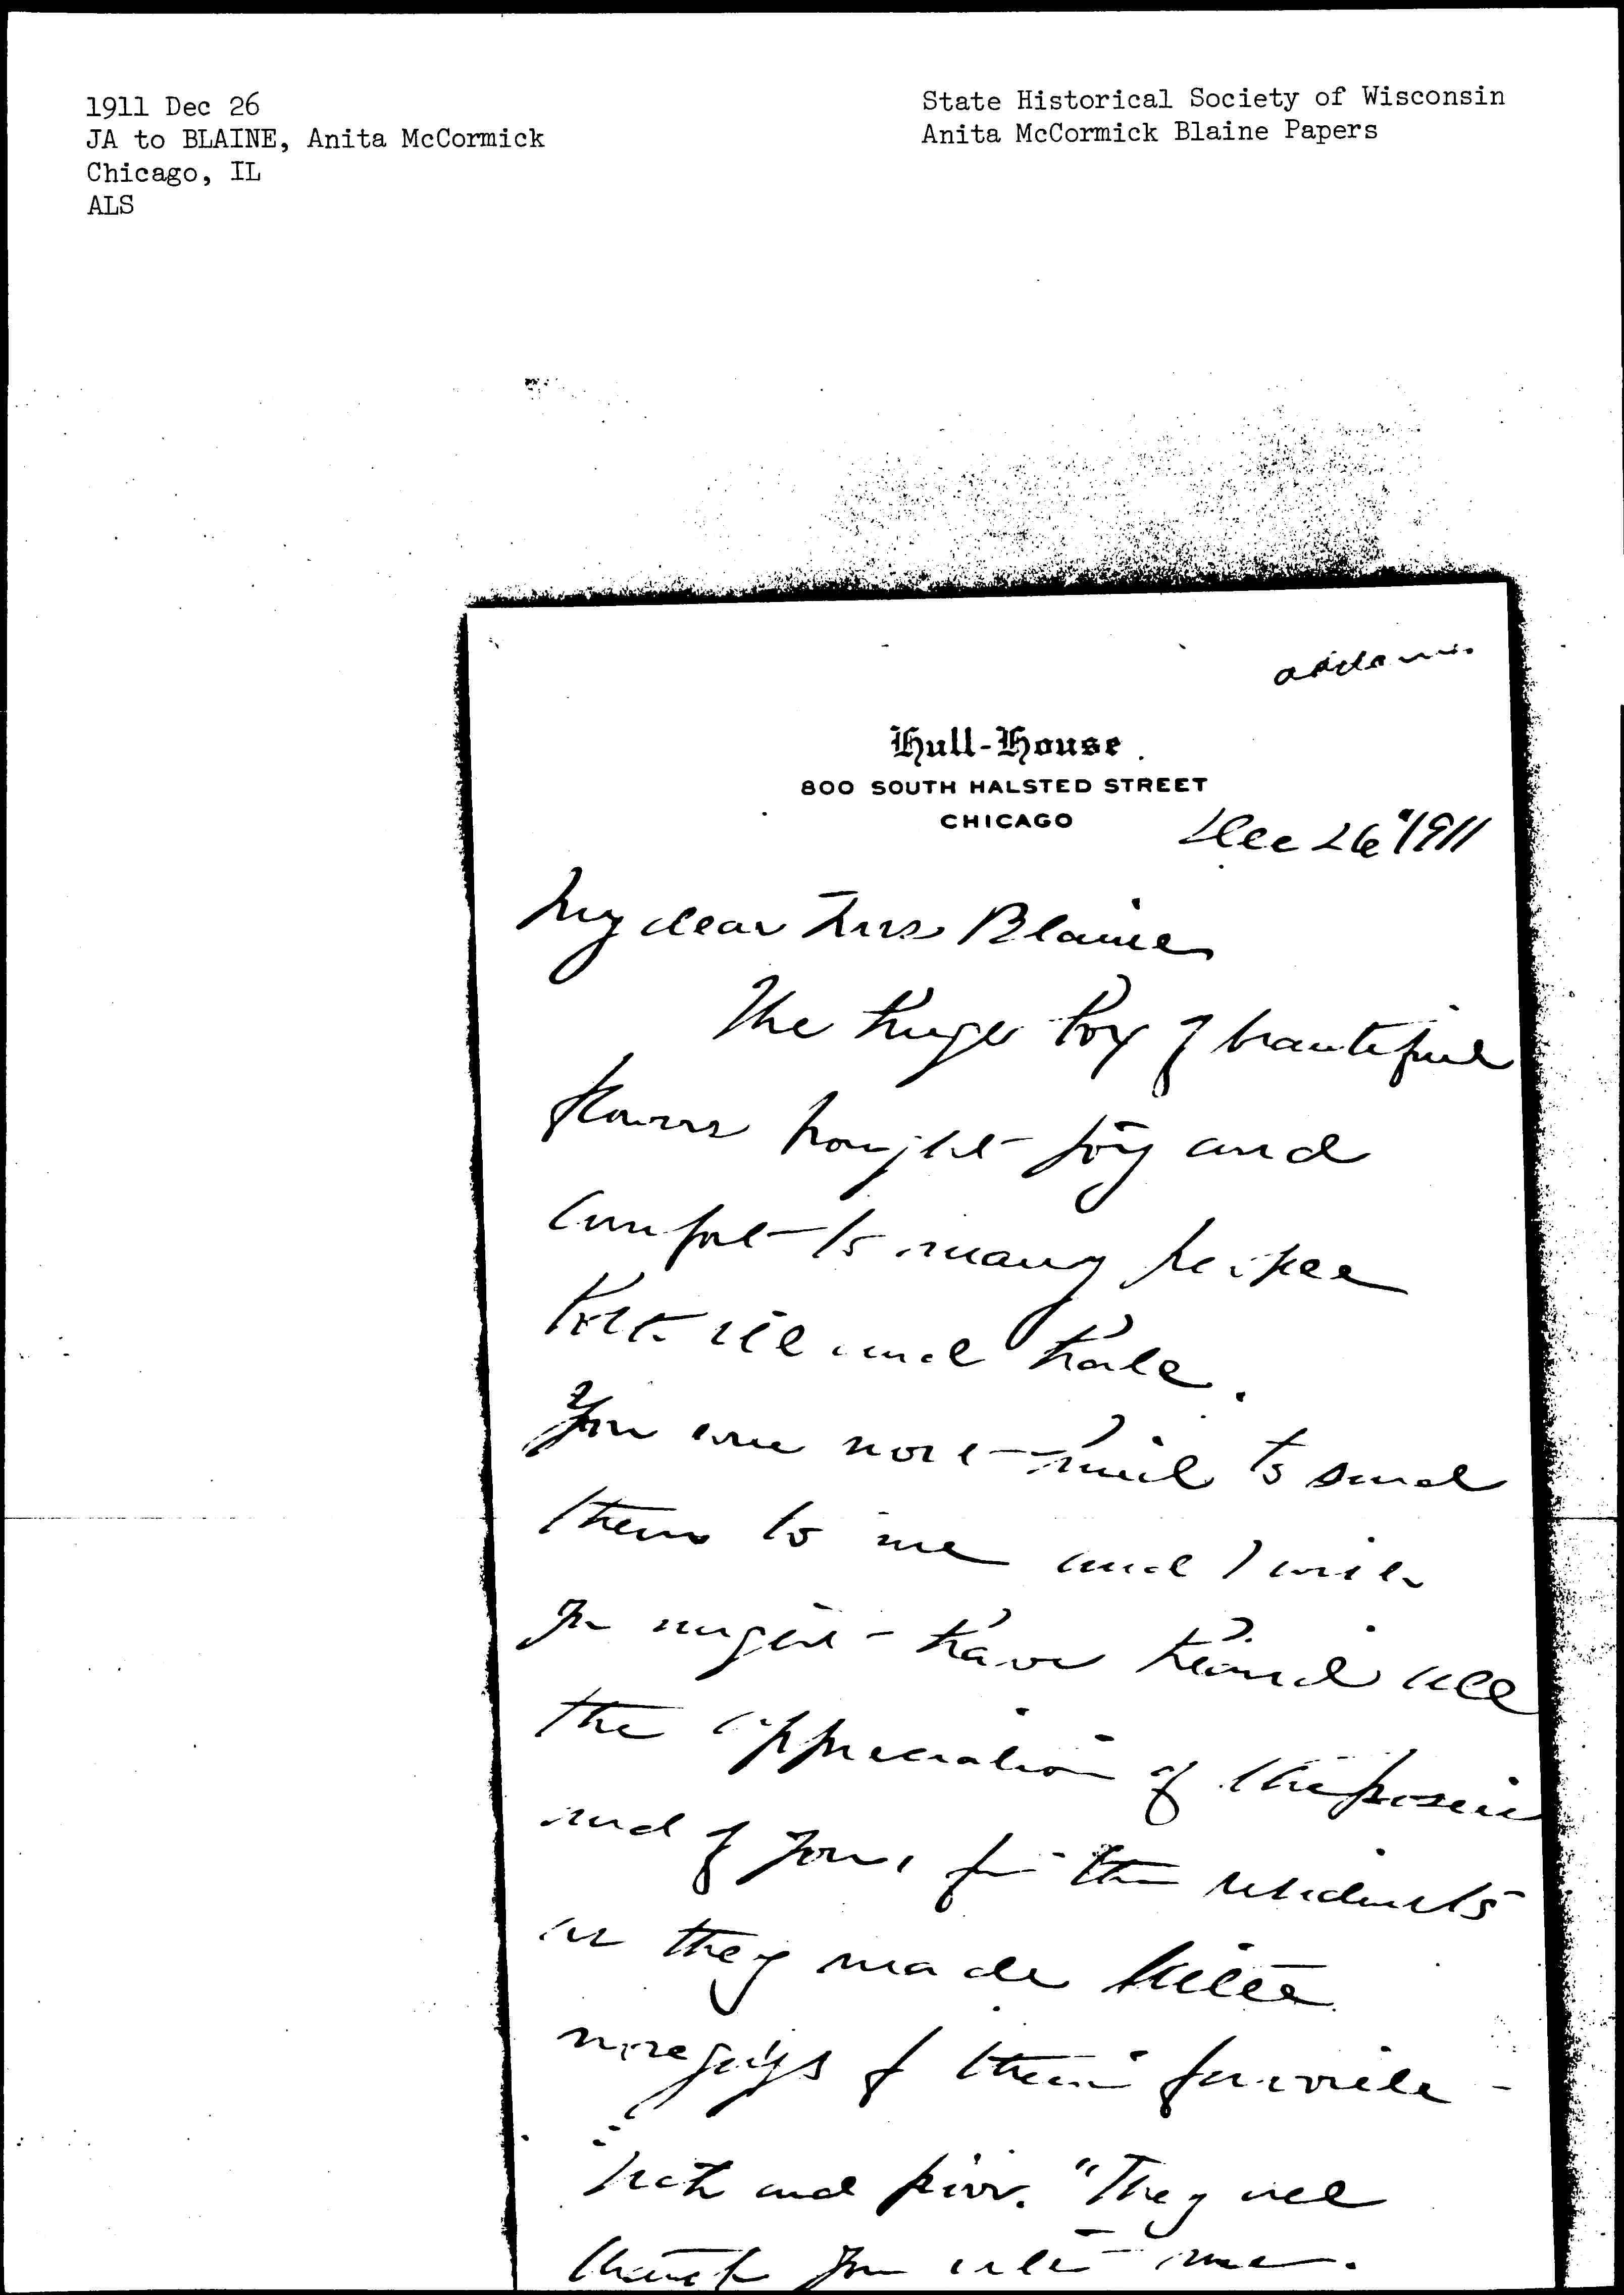 1911 Dec 26
JA to BLAINE, Anita McCormick
Chicago, IL
ALS
State Historical Society of Wisconsin
Anita McCormick Blaine Papers
Addams.
Hull-House.
800 SOUTH HALSTED STREET
CHICAGO
Dec 26" 1911
My dear Mrs Blaine
The huge box of beautiful
flowers brought joy and
comfort to many people
both ill and hale.
You were most kind to send
them to me and I wish
you might have heard all
the appreciation of
and of you, from the residents
as they made little
nosegays of their favorite -
"They all
thank you with me.